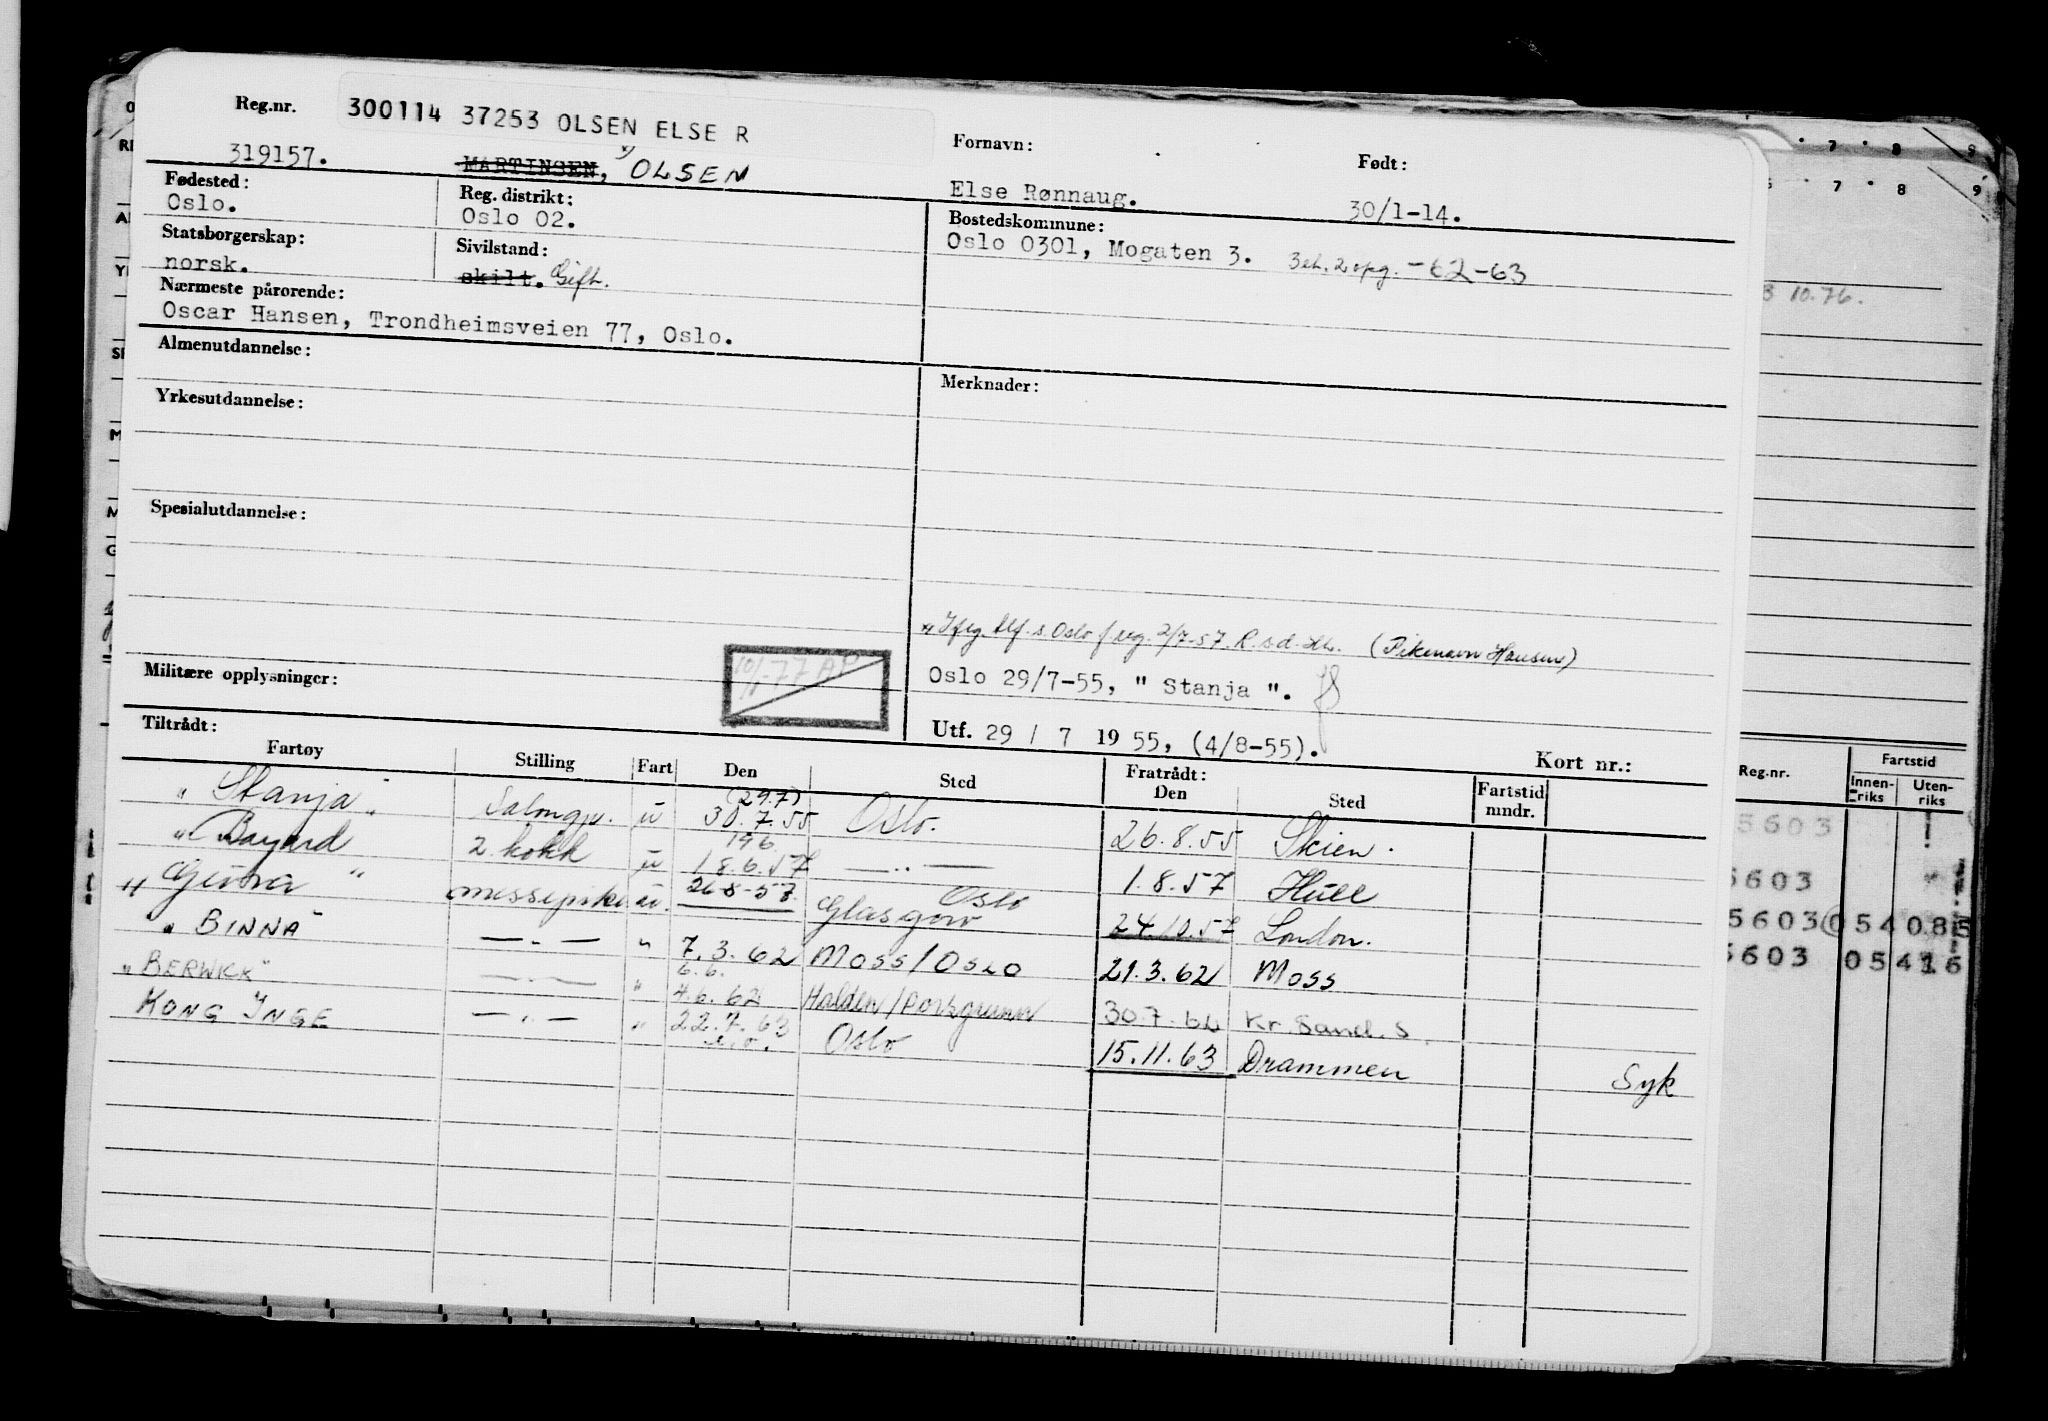 Reg.nr. 300114 37253 OLSEN ELSE R
319157. MARTINSEN, x) OLSEN
Fornavn: Født:
Else Rønnaug. 30/1-14.
Fødested: Reg. distrikt: Bostedskommune:
Oslo. Oslo 02. Oslo 0301, Mogaten 3. 3et. 2 opg. -62-63
Statsborgerskap: Sivilstand:
norsk. skilt. Gift.
Nærmeste pårørende:
Oscar Hansen, Trondheimsveien 77, Oslo.
Almenutdannelse:
Merknader:
Yrkesutdannelse:
Spesialutdannelse:
x) Ifg. Oslo reg. 2/7-57. (Pikenavn Hansen)
Militære opplysninger: 10/1-77 AP
Oslo 29/7-55, " Stanja ".
Utf. 29 / 7 19 55, (4/8-55). Kort nr.:
Tiltrådt: Fratrådt:
Fartøy Stilling Fart Den Sted Den Sted Fartstid mndr.
" Stanja " Salongp. u (29.7) 30.7.55 Oslo. 26.8.55 Skien.
" Bayard 2 kokk u 196 18.6.57 — " — 1.8.57 Hull
" " messepike u. 26-8-57 Glasgow Oslo 24.10.57 London.
" BINNA " — " — " 7.3.62 Moss/Oslo 21.3.62 Moss
" BERWICK " — " — " 6.6. 4.6.62 Halden/Porsgrunn 30.7.62 Kr.Sand.S.
KONG INGE — " — " 22.7.63 Oslo 15.11.63 Drammen Syk
7 8 9
7 8 9
10.76.
Reg.nr. Fartstid
Innen-riks Uten-riks
5603
5603
5603 054085
5603 0541 6